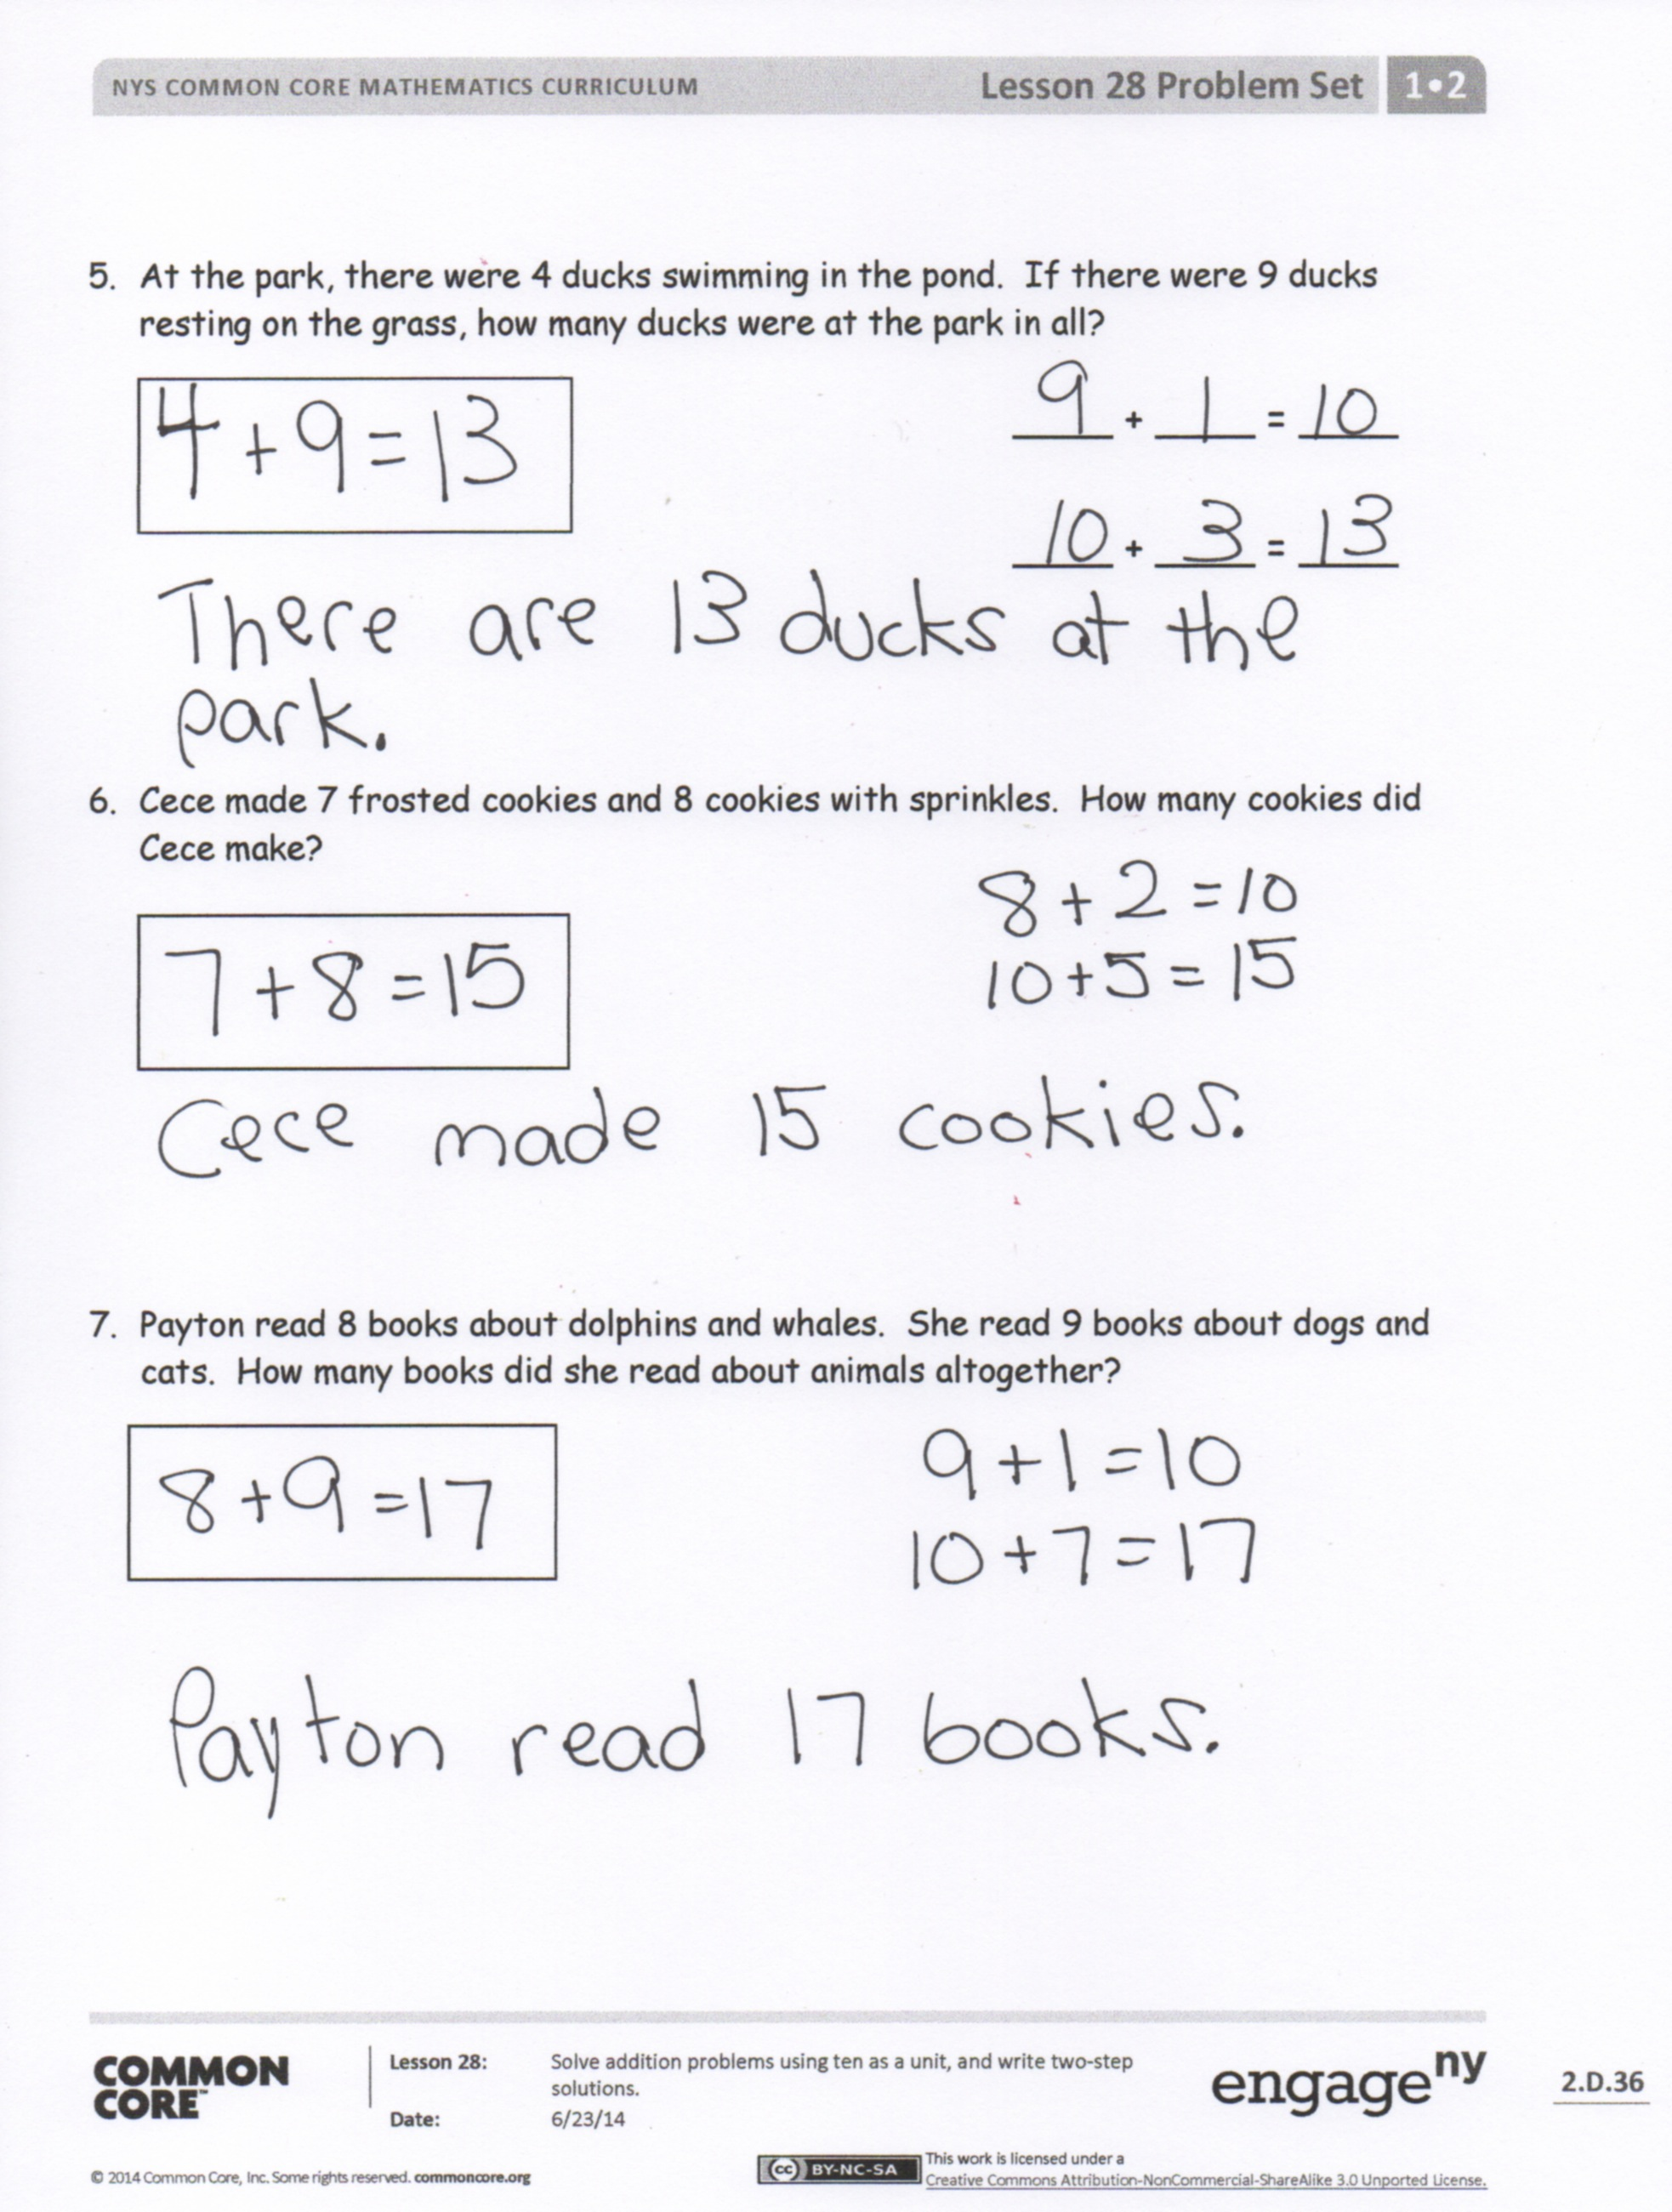 NYS COMMON CORE MATHEMATICS CURRICULUM Lesson 28 Problem Set 1•2
5. At the park, there were 4 ducks swimming in the pond. If there were 9 ducks
resting on the grass, how many ducks were at the park in all?
4 + 9 = 13
9 + 1 = 10
10 + 3 = 13
There are 13 ducks at the
park.
6. Cece made 7 frosted cookies and 8 cookies with sprinkles. How many cookies did
Cece make?
7 + 8 = 15
8 + 2 = 10
10 + 5 = 15
Cece made 15 cookies.
7. Payton read 8 books about dolphins and whales. She read 9 books about dogs and
cats. How many books did she read about animals altogether?
8 + 9 = 17
9 + 1 = 10
10 + 7 = 17
Payton read 17 books.
COMMON
CORE™
Lesson 28: Solve addition problems using ten as a unit, and write two-step
solutions.
Date: 6/23/14
engage ny
2.D.36
© 2014 Common Core, Inc. Some rights reserved. commoncore.org
cc BY-NC-SA
This work is licensed under a
Creative Commons Attribution-NonCommercial-ShareAlike 3.0 Unported License.